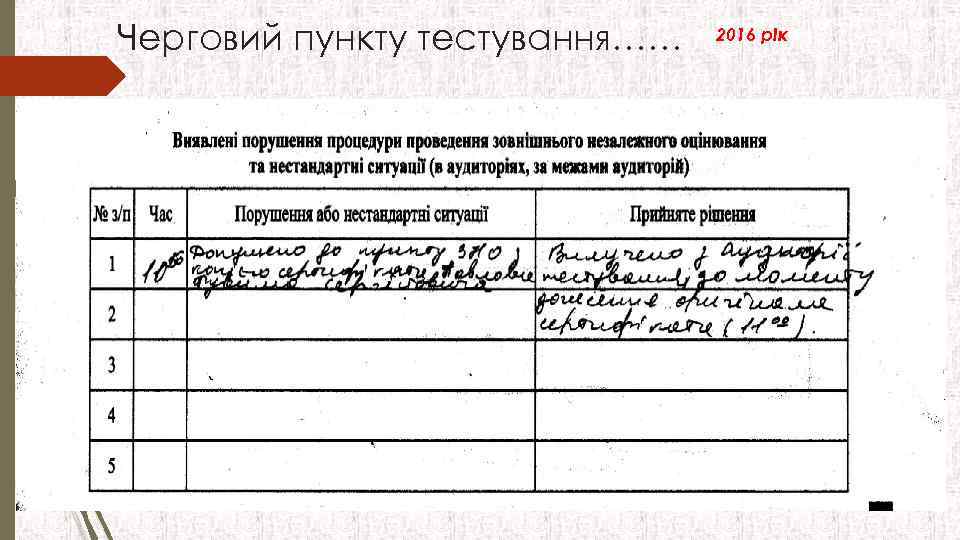 Черговий пункту тестування......
2016 рік
Виявлені порушення процедури проведення зовнішнього незалежного оцінювання
та нестандартні ситуації (в аудиторіях, за межами аудиторій)
№ з/п Час Порушення або нестандартні ситуації Прийняте рішення
1 10 Допущено до пункту ЗНО з Вилучено з аудиторії
копією сертифіката тестування, до моменту
2 донесення оригінала
сертифіката (11⁰⁰).
3
4
5